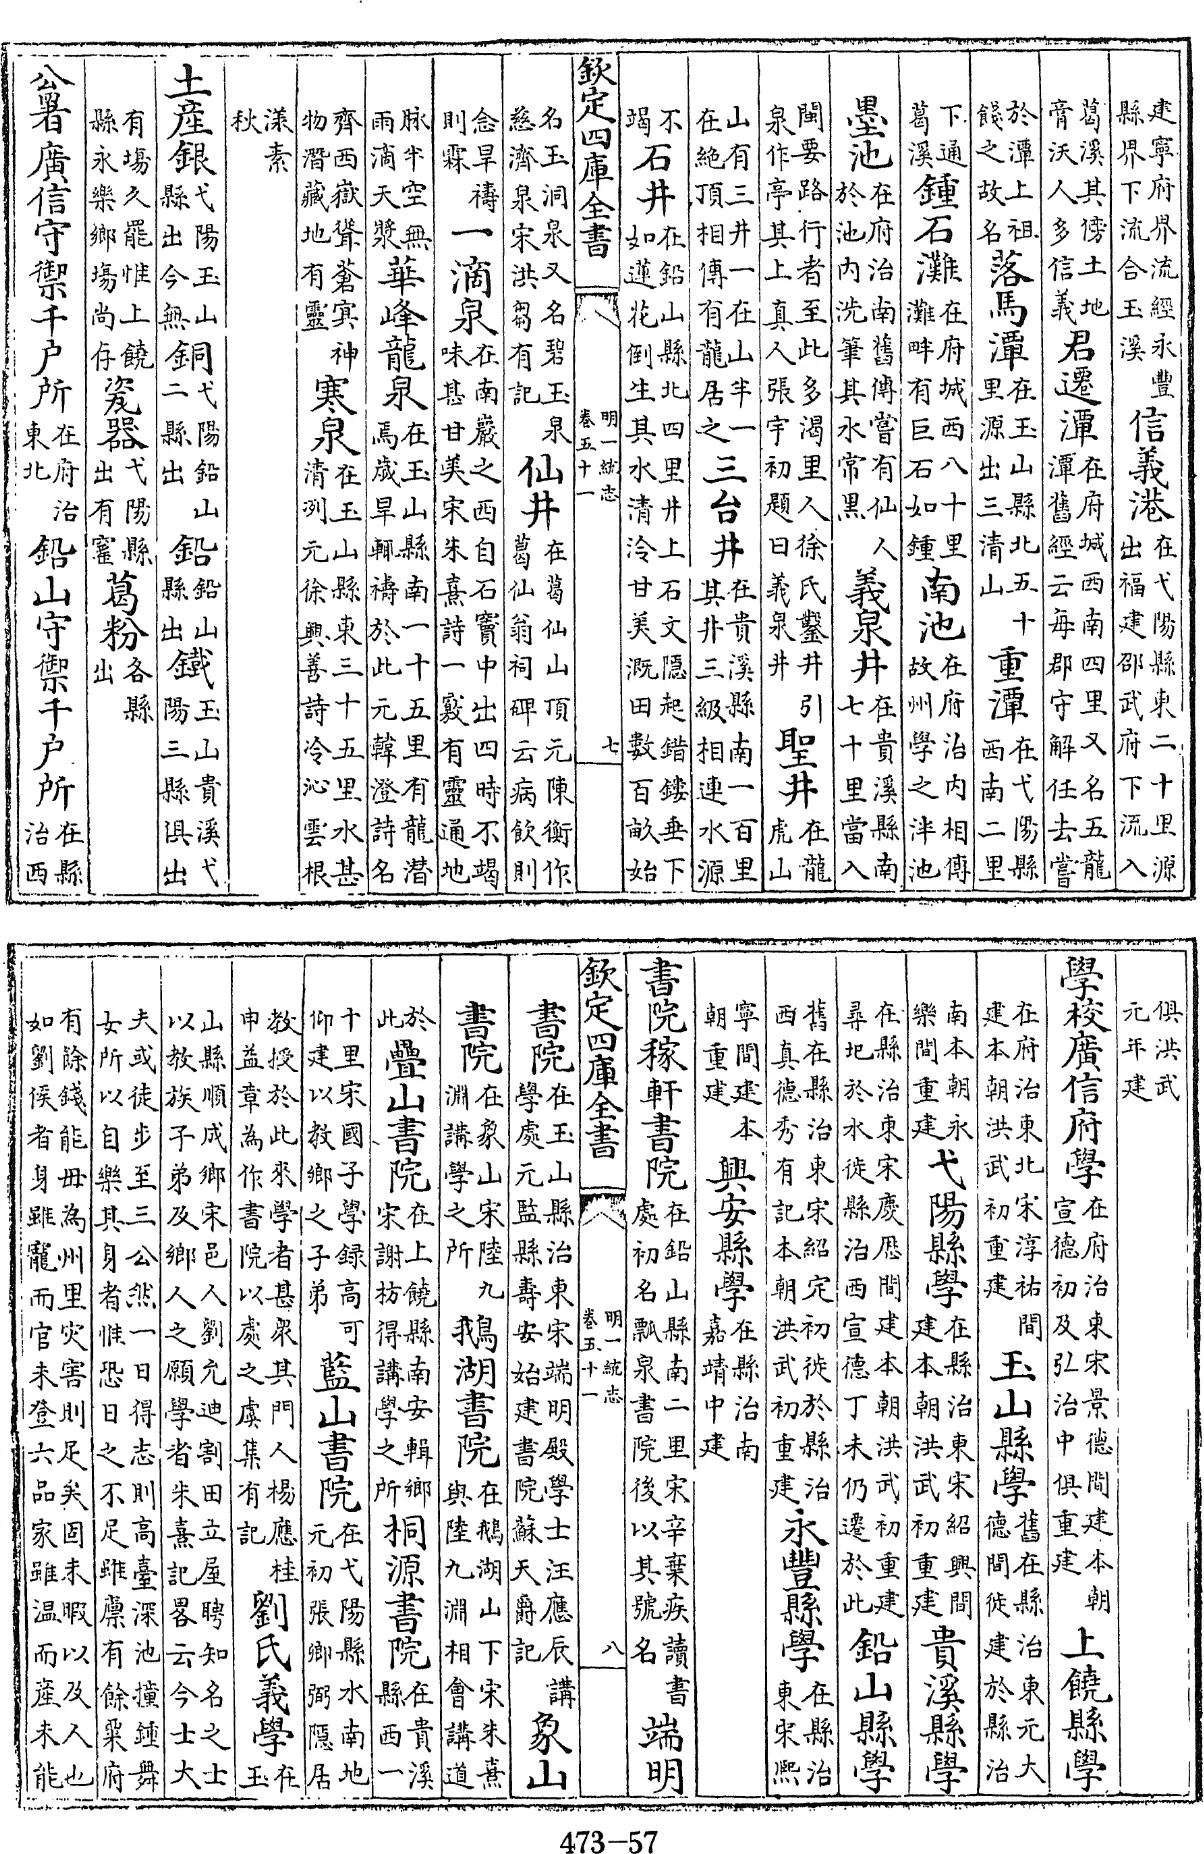 建寧府界流經永豐縣界下流合玉溪信義港在弋陽縣東二十里源出福建邵武府下流入
葛溪其傍土地膏沃人多信義君遷潭在府城西南四里又名五龍潭舊經云每郡守解任去嘗
於潭上祖餞之故名落馬潭在玉山縣北五十里源出三清山重潭在弋陽縣西南二里
下通葛溪鍾石灘在府城西八十里灘畔有巨石如鍾南池在府治内相傳故州學之泮池
墨池在府治南舊傳嘗有仙人於池内洗筆其水常黑義泉井在貴溪縣南七十里當入
閩要路行者至此多渴里人徐氏鑿井引泉作亭其上真人張宇初題曰義泉井聖井在龍虎山
山有三井一在山半一在絶頂相傳有龍居之三台井在貴溪縣南一百里其井三級相連水源
不竭石井在鉛山縣北四里井上石文隱起錯鏤垂下如蓮花倒生其水清泠甘美溉田數百畝始
欽定四庫全書 明一統志卷五十一 七
名玉洞泉又名碧玉泉慈濟泉宋洪芻有記仙井在葛仙山頂元陳衡作葛仙翁祠碑云病飲則
念旱禱則霖一滴泉在南巖之西自石竇中出四時不竭味甚甘美宋朱熹詩一竅有靈通地
脉半空無雨滴天漿華峰龍泉在玉山縣南一十五里有龍潛焉歲旱輒禱於此元韓澄詩名
齊西嶽聳蒼㝠神物潛藏地有靈寒泉在玉山縣東三十五里水甚清冽元徐興善詩冷沁雲根
漾素秋
土産銀弋陽玉山縣出今無銅弋陽鉛山二縣出鉛鉛山縣出鐵玉山貴溪弋陽三縣俱出
有場久罷惟上饒縣永樂鄉場尚存瓷器弋陽縣出有窰葛粉各縣出
公署廣信守禦千户所在府治東北鉛山守禦千户所在縣治西
俱洪武元年建
學校廣信府學在府治東宋景德間建本朝宣德初及弘治中俱重建上饒縣學
在府治東北宋淳祐間建本朝洪武初重建玉山縣學舊在縣治東元大德間徙建於縣治
南本朝永樂間重建弋陽縣學在縣治東宋紹興間建本朝洪武初重建貴溪縣學
在縣治東宋慶厯間建本朝洪武初重建尋圮於水徙縣治西宣德丁未仍遷於此鉛山縣學
舊在縣治東宋紹定初徙於縣治西真德秀有記本朝洪武初重建永豐縣學在縣治東宋熈
寧間建本朝重建興安縣學在縣治南嘉靖中建
書院稼軒書院在鉛山縣南二里宋辛棄疾讀書處初名瓢泉書院後以其號名端明
欽定四庫全書 明一統志卷五十一 八
書院在玉山縣治東宋端明殿學士汪應辰講學處元監縣壽安始建書院蘇天爵記象山
書院在象山宋陸九淵講學之所鵝湖書院在鵝湖山下宋朱熹與陸九淵相會講道
於此疊山書院在上饒縣南安輯鄉宋謝枋得講學之所桐源書院在貴溪縣西一
十里宋國子學録高可仰建以教鄉之子弟藍山書院在弋陽縣水南地元初張卿弼隠居
教授於此來學者甚衆其門人楊應桂申益章為作書院以處之虞集有記劉氏義學在玉
山縣順成鄉宋邑人劉允迪割田立屋聘知名之士以教族子弟及鄉人之願學者朱熹記畧云今士大
夫或徒步至三公然一日得志則高臺深池撞鍾舞女所以自樂其身者惟恐日之不足雖廪有餘粟府
有餘錢能毋為州里灾害則足矣固未暇以及人也如劉侯者身雖寵而官未登六品家雖温而産未能
473-57